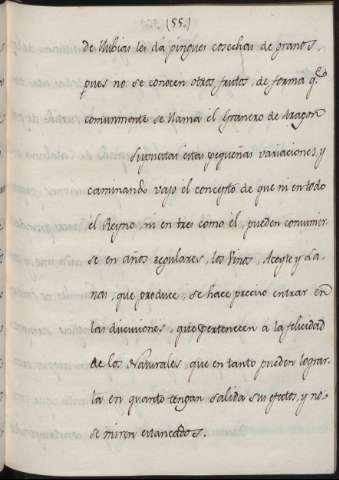 (55.)
de llubias les dà pingues cosechas de granos,
pues no se conocen otros frutos, de forma q.e
comunmente se llama el Granero de Aragon
Supuestas estas pequeñas variaciones, y
caminando vajo el concepto de que ni en todo
el Reyno, ni en tres como él, pueden consumir-
se en años regulares, los Vinos, Aceyte y La-
nas, que produce, se hace preciso entrar en
las discusiones, que pertenecen a la felicidad
de los Naturales, que en tanto pueden lograr-
la en quanto tengan salida sus efectos, y no
se miren estancados.